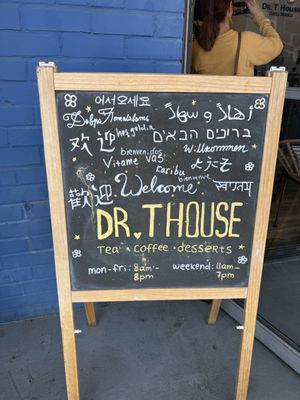 DR. T HOUSE
어서오세요
أهلاً و سهلاً
Dobro
hoş geldin
ברוכים הבאים
欢迎
bienvenidos
Willkommen
Vítáme vás
ようこそ
karibu
bienvenue
स्वागतम
歡迎
Welcome
DR. T HOUSE
TEA • COFFEE • DESSERTS
mon-fri: 8am-
8pm
weekend: 11am-
7pm